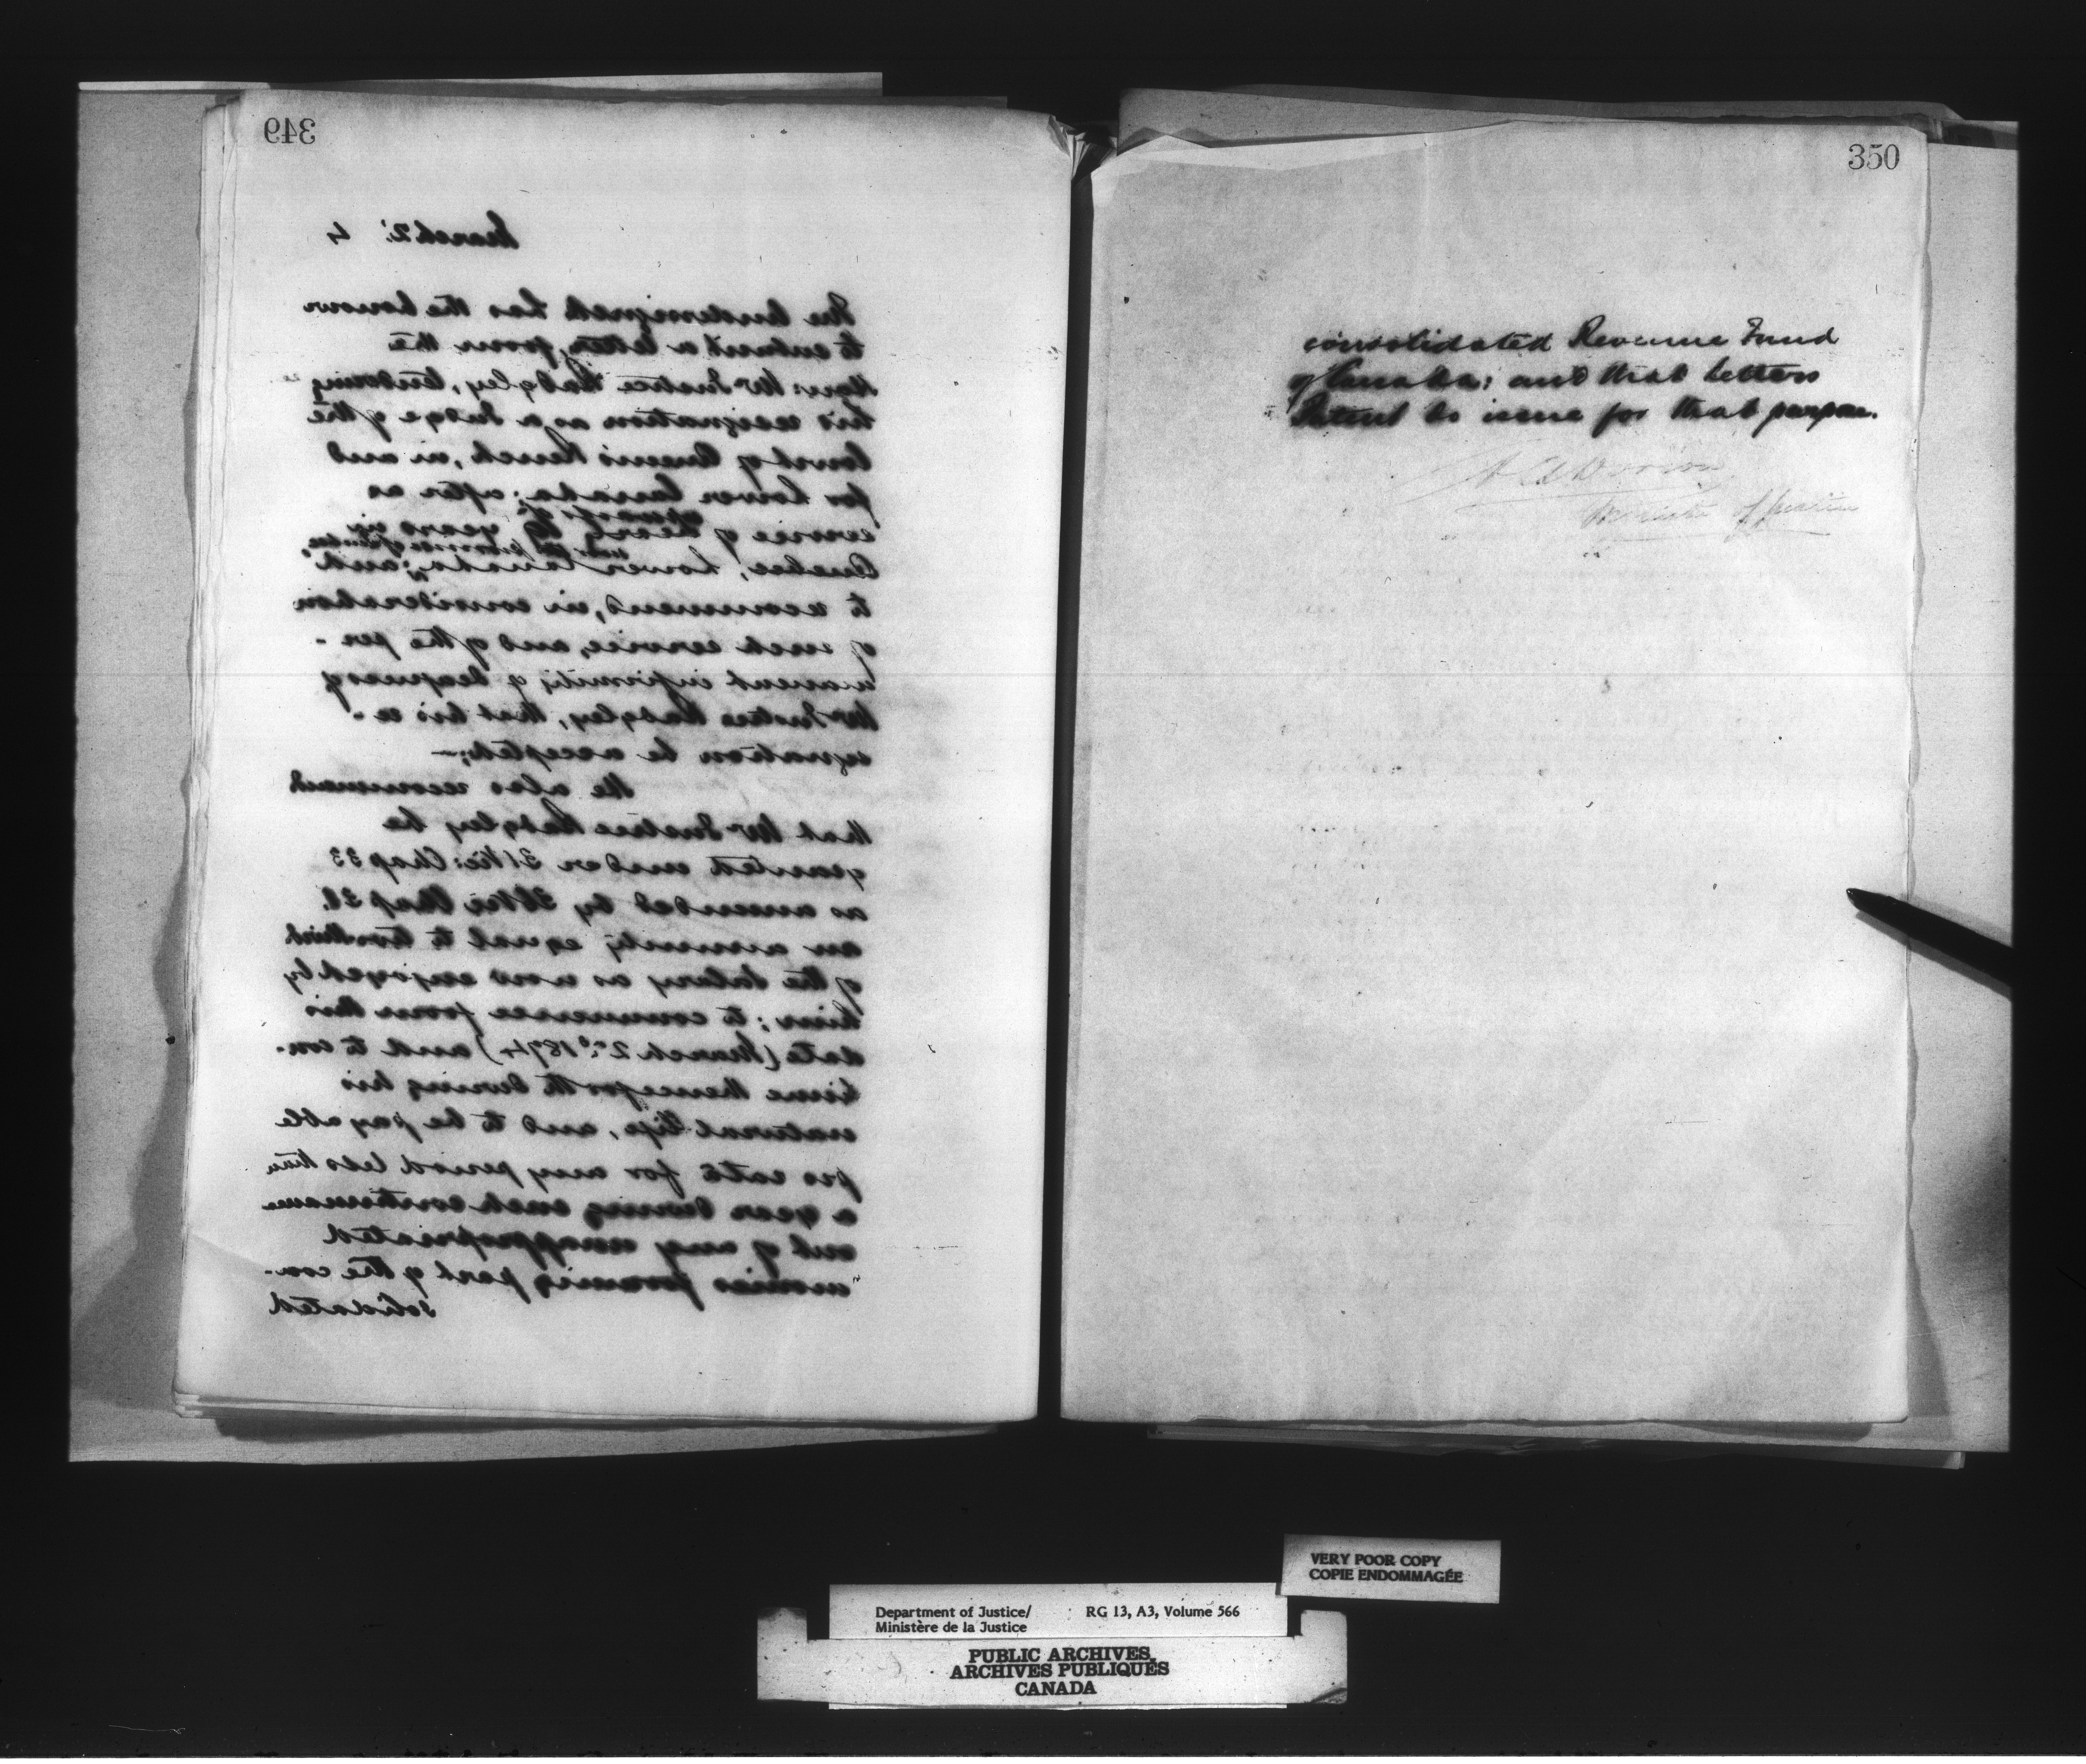 349
March 2: 4
The Undersigned has the honour
to submit a letter, from the
Hon: Mr Justice Badgley, tendering
his resignation as a Judge of the
Court of Queen's Bench, in and
for Lower Canada; after as
service of nearly years in
Quebec, Lower Canada; and
to recommend, in consideration
of such service, and of the per-
manent infirmity of deafness of
Mr Justice Badgley, that his re-
signation be accepted;—
He also recommend
that Mr Justice Badgley be
granted under 31 Vic: Chap 33
as amended by 36 Vic Chap 31.
an annuity equal to two third
of the salary as now enjoyed by
him; to commence from this
date (March 2nd 1874) and to con-
tinue thenceforth during his
natural life, and to be payable
pro rata for any period less than
a year during such continuance
out of any unappropriated
monies forming part of the con-
solidated
350
consolidated Revenue Fund
of Canada; and that letters
Patent do issue for that purpose.
A A Dorion
Minister of Justice
VERY POOR COPY
COPIE ENDOMMAGÉE
Department of Justice/ RG 13, A3, Volume 566
Ministère de la Justice
PUBLIC ARCHIVES
ARCHIVES PUBLIQUES
CANADA